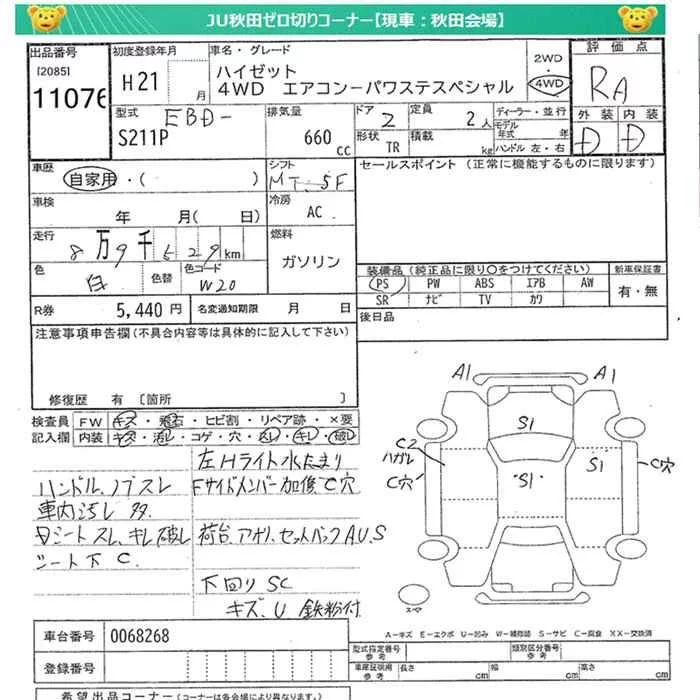 JU秋田ゼロ切りコーナー【現車：秋田会場】
出品番号
[2085]
11076
初度登録年月
H21 月
車名・グレード
ハイゼット
4WD エアコンーパワステスペシャル
2WD
・
4WD
評価点
RA
外装 内装
D D
型式
EBD-
S211P
排気量
660 cc
ドア
2
形状
TR
定員
2人
積載
kg
ディーラー・並行
モデル年式 年
ハンドル 左・右
車歴
自家用・( )
シフト
MT 5F
セールスポイント (正常に機能するものに限ります)
車検
年 月( 日)
冷房
AC
走行
8万9千529km
燃料
ガソリン
色
白
色替
色コード
W20
装備品(純正品に限り○をつけてください)
PS PW ABS エアB AW
SR ナビ TV カワ
新車保証書
有・無
R券
5,440円
名変通知期限 月 日
後日品
注意事項申告欄(不具合内容等は具体的に記入して下さい)
修復歴 有 [箇所 ]
検査員記入欄
FW キズ・飛石・ヒビ割・リペア跡・×要
内装 キズ・汚レ・コゲ・穴・凹レ・キレ・破レ
左Hライト水たまり
ハンドル、ノブスレ
Fサイドメンバー加修C穴
車内汚レ多
Dシートスレ、キレ破レ
荷台、アオリ、セットバックA.U.S
シート下C
下回りSC
キズ、U 鉄粉付
A1 A1
S1
C2
ハガレ
C穴
S1
S1
C穴
スマ
A－キズ E－エクボ U－凹み W－補修跡 S－サビ C－腐食 XX－交換済
車台番号 0068268
型式指定番号
参考
類別区分番号
参考
登録番号
車庫証明用
参考
長さ cm 幅 cm 高さ cm
希望出品コーナー(コーナーは各会場により異なります)